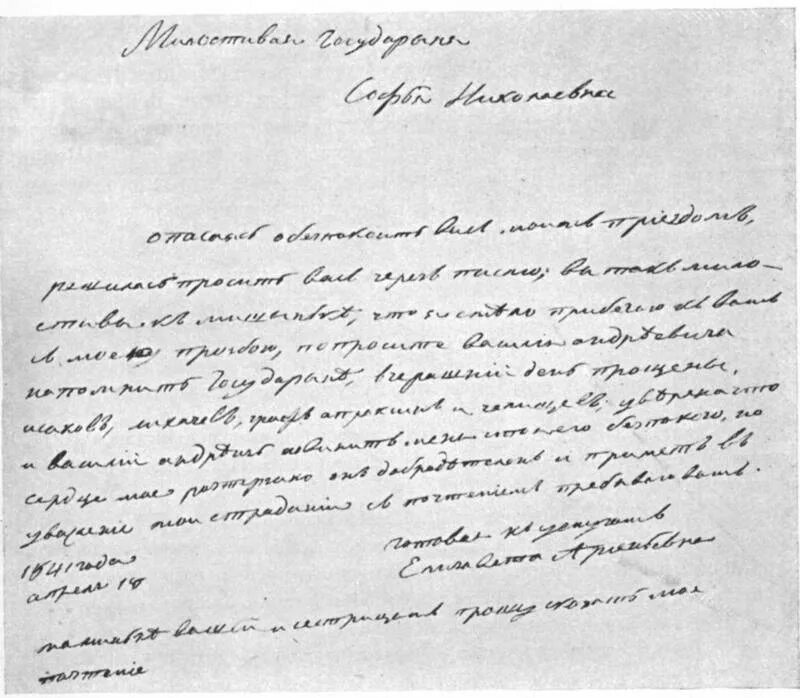 Милостивая Государыня
Софья Николаевна
опасаясь обезпокоить васъ моимъ приездомъ,
решилась просить васъ черезъ писмо; вы такъ мило-
стивы къ мишынькѣ, что я смѣло прибегаю къ вамъ
с моею прозбою, попросите василия андрѣевича
напомнить Государынѣ, вчерашний день прощены,
исаковъ, лихачевъ, графъ апраксинъ и челищевъ; увѣрена что
и василий андрѣичь извинить меня что я его безпокою, но
сердце мое растерзано онъ добродѣтеленъ и приметъ въ
уважение мои страдании с почтениемъ пребываю вамъ.
готовая къ услугамъ
Елизавета Арсеньевна
1841 года
апрель 18
мамынькѣ вашей и сестрицамъ прошу сказать мое
почтение